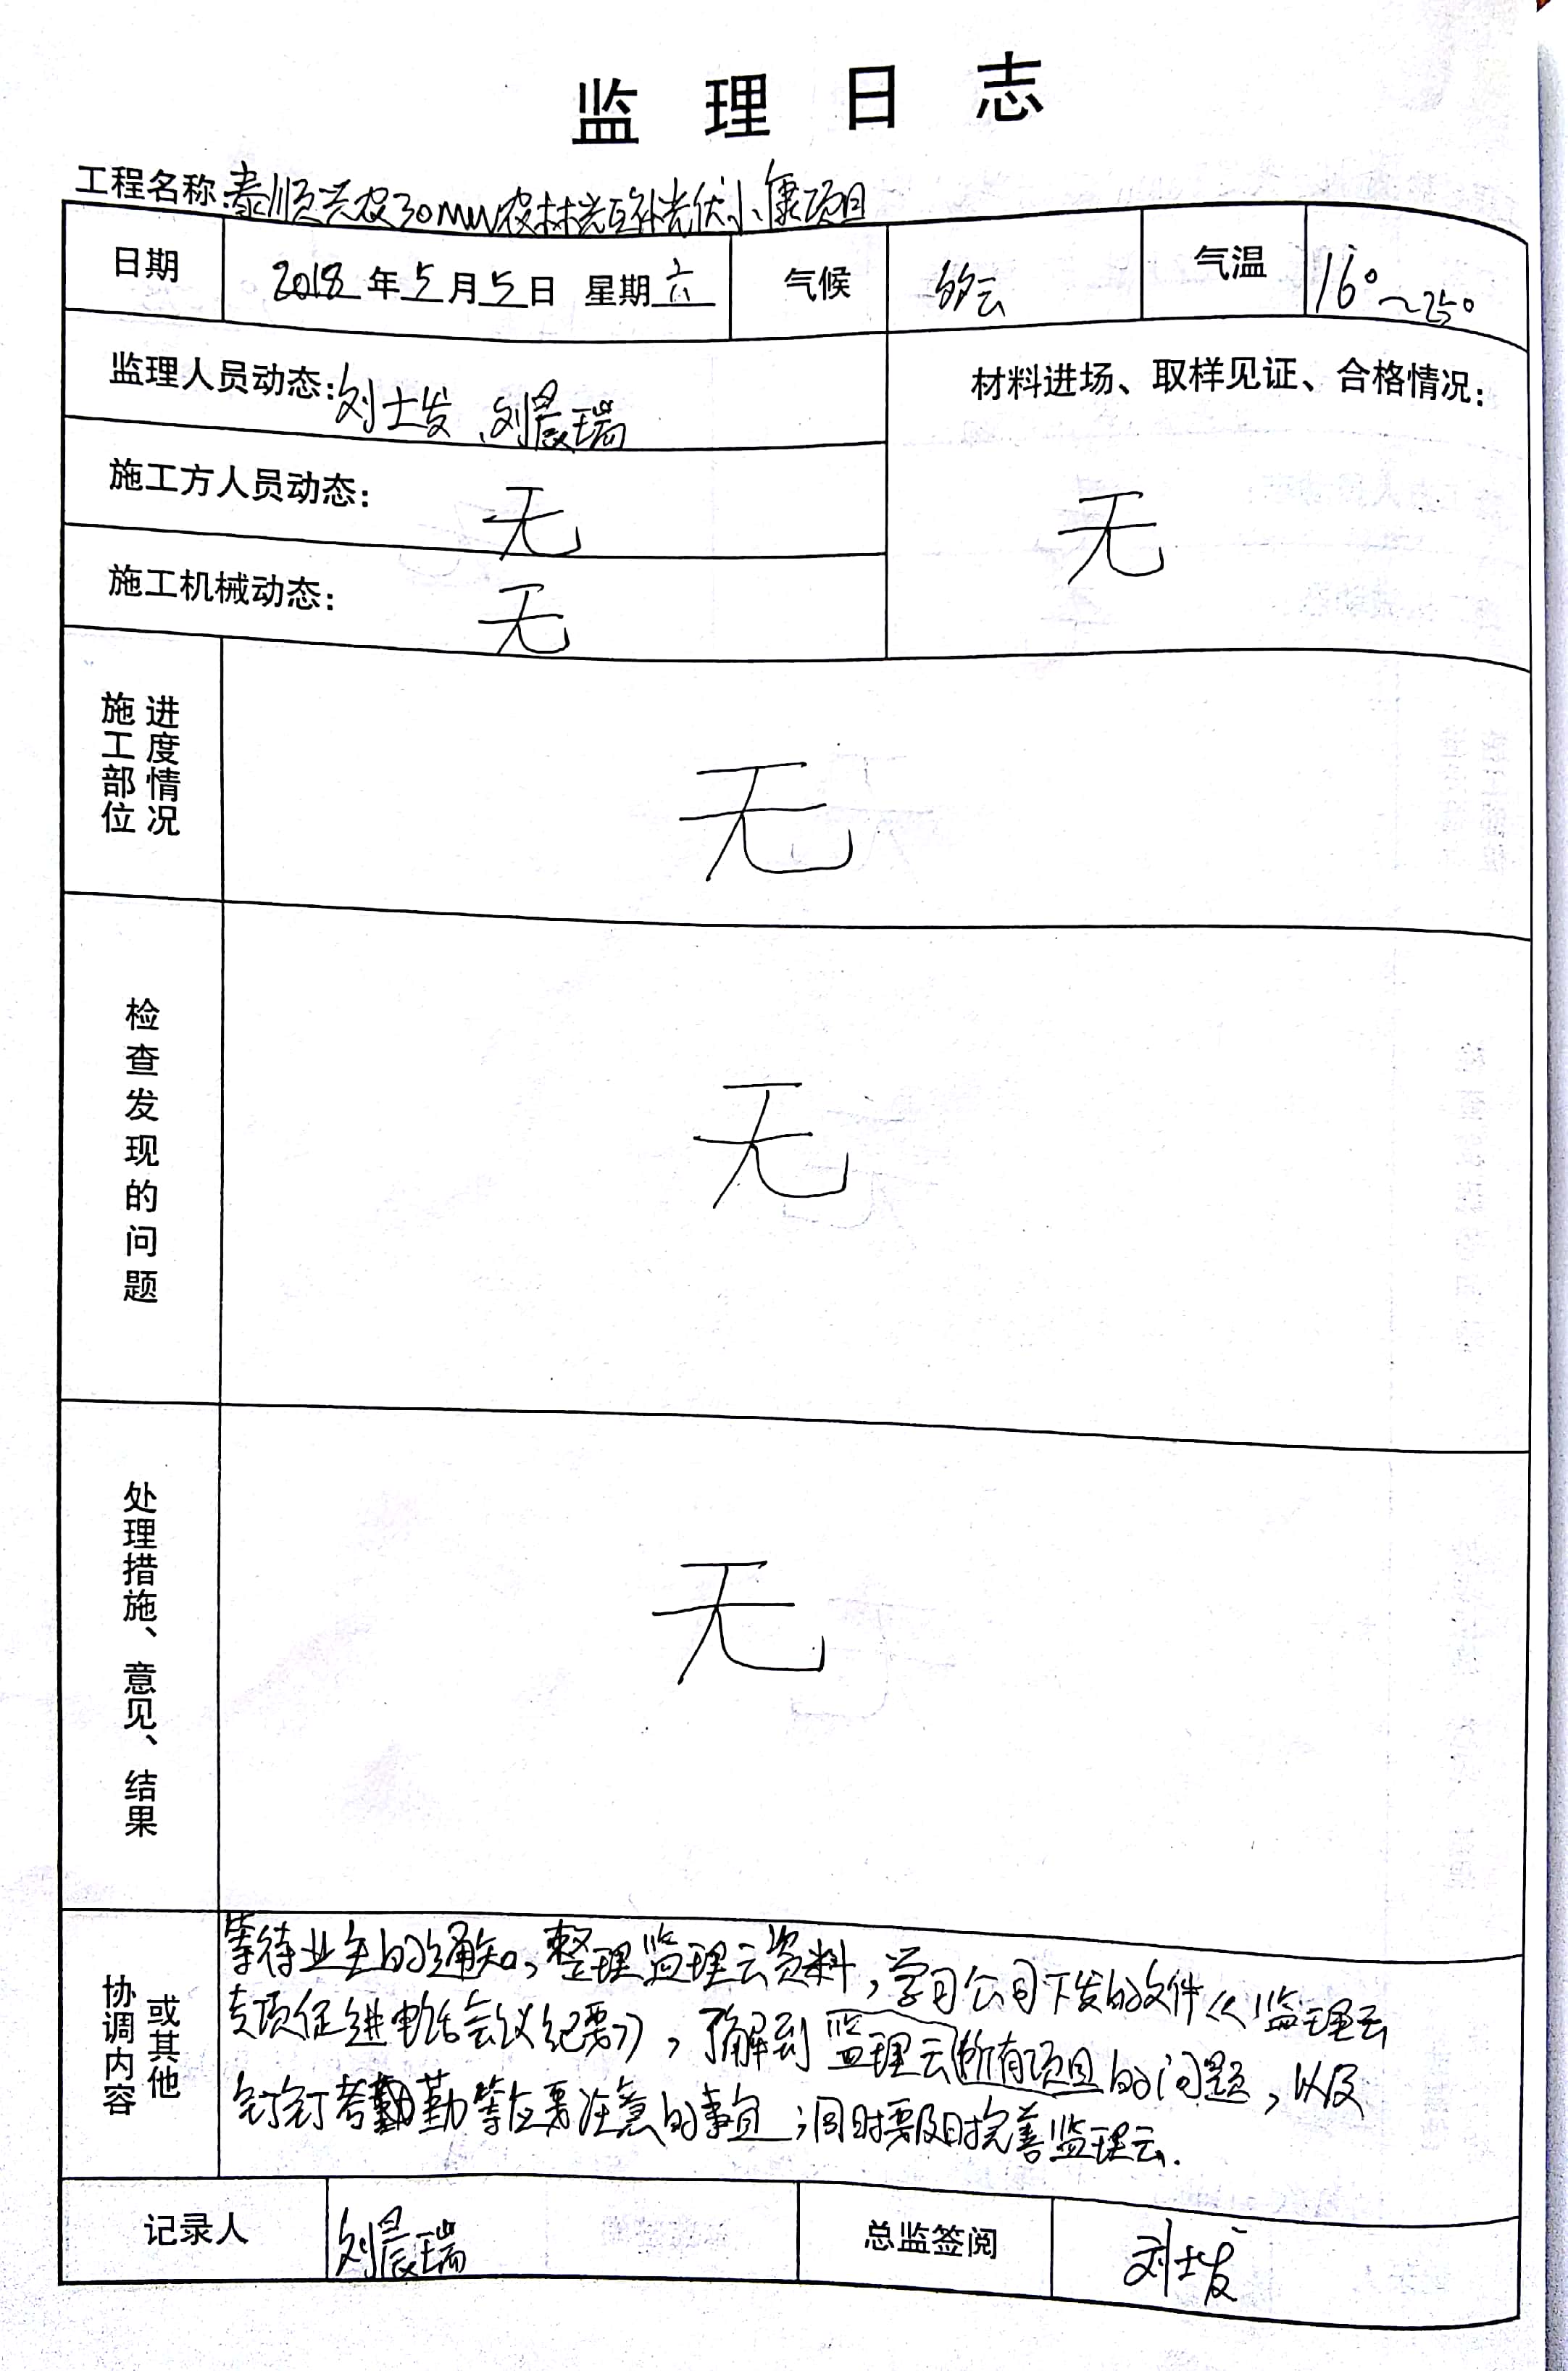 监理日志
工程名称:泰顺兴农30MW农林光互补光伏小康项目
日期 2018年5月5日 星期六 气候 多云 气温 16°~25°
监理人员动态:刘士发、刘晨瑞
材料进场、取样见证、合格情况:
无
施工方人员动态: 无
施工机械动态: 无
施工部位
进度情况
无
检查发现的问题
无
处理措施、意见、结果
无
协调内容
或其他
等待业主的通知,整理监理云资料,学习公司下发的文件《监理云
专项促进电话会议纪要》,了解到监理云所有项目的问题,以及
钉钉考勤等应要注意的事宜;同时要及时完善监理云.
记录人 刘晨瑞 总监签阅 刘士发